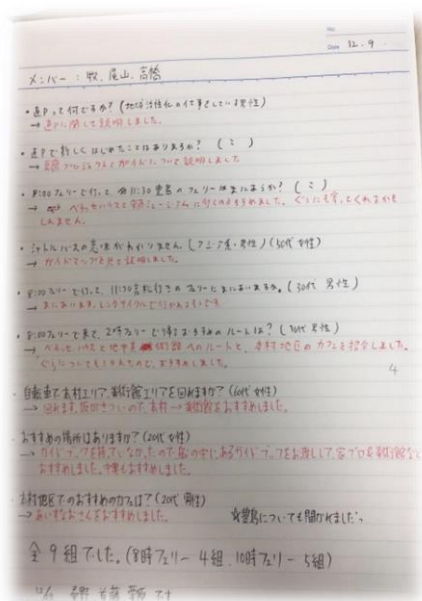 No.
Date 12. 9.
メンバー : 牧、尾山、高橋
・直Pって何ですか? (地域活性化の仕事をしている男性)
→ 直Pに関して説明しました。
・直Pで新しくはじめたことはありますか? ( ミ )
→ プロジェクトとガイドについて説明しました
・8:00フェリーで行って、11:30豊島のフェリーはまにあうか? ( ミ )
→ ベネッセハウスと ミュージアムに行くのをすすめました。ぐうにも寄ってくれるかもしれません。
・シャトルバスの意味がわかりません。(アジア系・男性) (50代 女性)
→ ガイドマップを見て説明しました。
・8:00フェリーで行って、11:30 行きのフェリーにまにあいますか。(30代 男性)
→ まにあいます。レンタサイクルで行かれるそうです
・8:00フェリーで来て、2時フェリーで帰るおすすめのルートは? (30代 男性)
→ ベネッセハウスと地中美術館へのルートと、本村地区のカフェを紹介しました。
ぐうについてもきかれたので、おすすめしました。
4
・自転車で本村エリア、美術館エリアを回れますか? (60代 女性)
→ 回れます。坂がきついので、本村→美術館をおすすめしました。
・おすすめの場所はありますか? (20代 女性)
→ ガイドブックを持っていなかったので、船の中にあるガイドブックをお渡しして、家プロや美術館など
おすすめしました。
・本村地区でのおすすめのカフェは? (20代 男性)
→ あいすなおさんをおすすめしました。
☆豊島についても聞かれました。
全9組でした。(8時フェリー 4組、10時フェリー 5組)